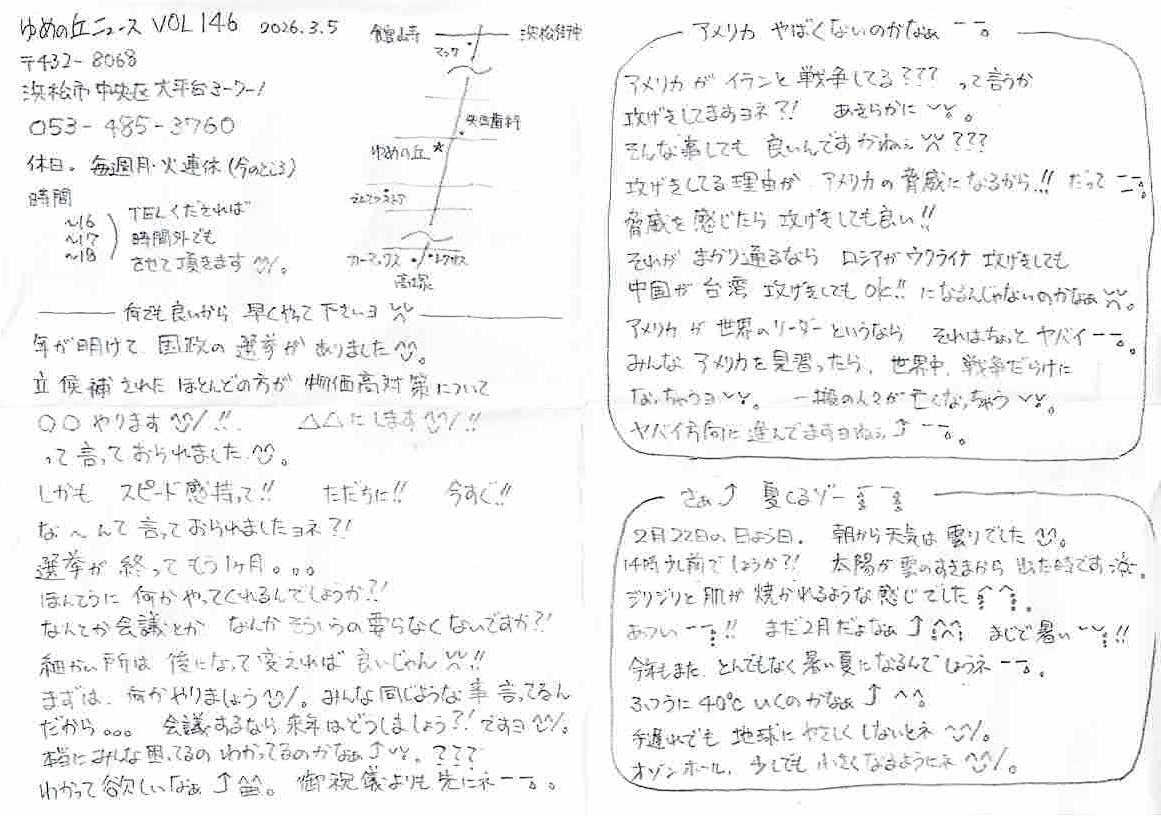 ゆめの丘ニュース VOL 146 2026.3.5
〒432-8068
浜松市中央区大平台3-7-1
053-485-3760
休日。毎週月・火連休(今のところ)
時間
~16
~17
~18
TELくだされば
時間外でも
させて頂きます
舘山寺
浜松街中
マック
矢田歯科
ゆめの丘 ★
カーマックス
レクサス
高塚
何でも良いから 早くやって下さいヨ
年が明けて 国政の選挙がありました。
立候補された ほとんどの方が 物価高対策について
○○やります!! △△にします!!
って言っておられました。
しかも スピード感持って!! ただちに!! 今すぐ!!
な~んて言っておられましたヨネ?!
選挙が終って もう1ヶ月。。。
ほんとうに 何かやってくれるんでしょうか?!
なんとか会議とか なんかそういうの要らなくないですか?!
細かい所は 後になって変えれば 良いじゃん!!
まずは、何かやりましょう。みんな同じような事 言ってるん
だから。。。 会議するなら来年はどうしましょう?!ですヨ。
本当にみんな困ってるの わかってるのかなぁ↑。???
わかって欲しいなぁ↑。御祝儀よりも 先にネーー。。
アメリカ やばくないのかなぁ ーー。
アメリカが イランと 戦争してる??? って言うか
攻げきしてますヨネ?! あきらかに。
そんな事しても 良いんですかねぇ???
攻げきしてる理由が アメリカの脅威になるから!! だって ーー。
脅威を感じたら 攻げきしても良い!!
それが まかり通るなら ロシアが ウクライナ 攻げきしても
中国が 台湾 攻げきしても OK!! になるんじゃないのかなぁ。
アメリカ が 世界のリーダー というなら それはちょっと ヤバイーー。
みんな アメリカを見習ったら、世界中、戦争だらけに
なっちゃうヨ。 一般の人々が 亡くなっちゃう。
ヤバイ方向に 進んでますヨねぇ↑ ーー。
さぁ↑ 夏くるゾー
2月22日の 日よう日。 朝から天気は 曇りでした。
14時少し前でしょうか?! 太陽が雲のすきまから 出た時です。
ジリジリと 肌が 焼かれるような感じでした。
あつい ーー!! まだ2月だよなぁ↑ まじで暑い!!
今年もまた、とんでもなく 暑い夏になるんでしょうネ ーー。
ふつうに 40℃ いくのかなぁ↑
手遅れでも 地球に やさしくしないとネ。
オゾンホール、少しでも 小さくなるようにネ。